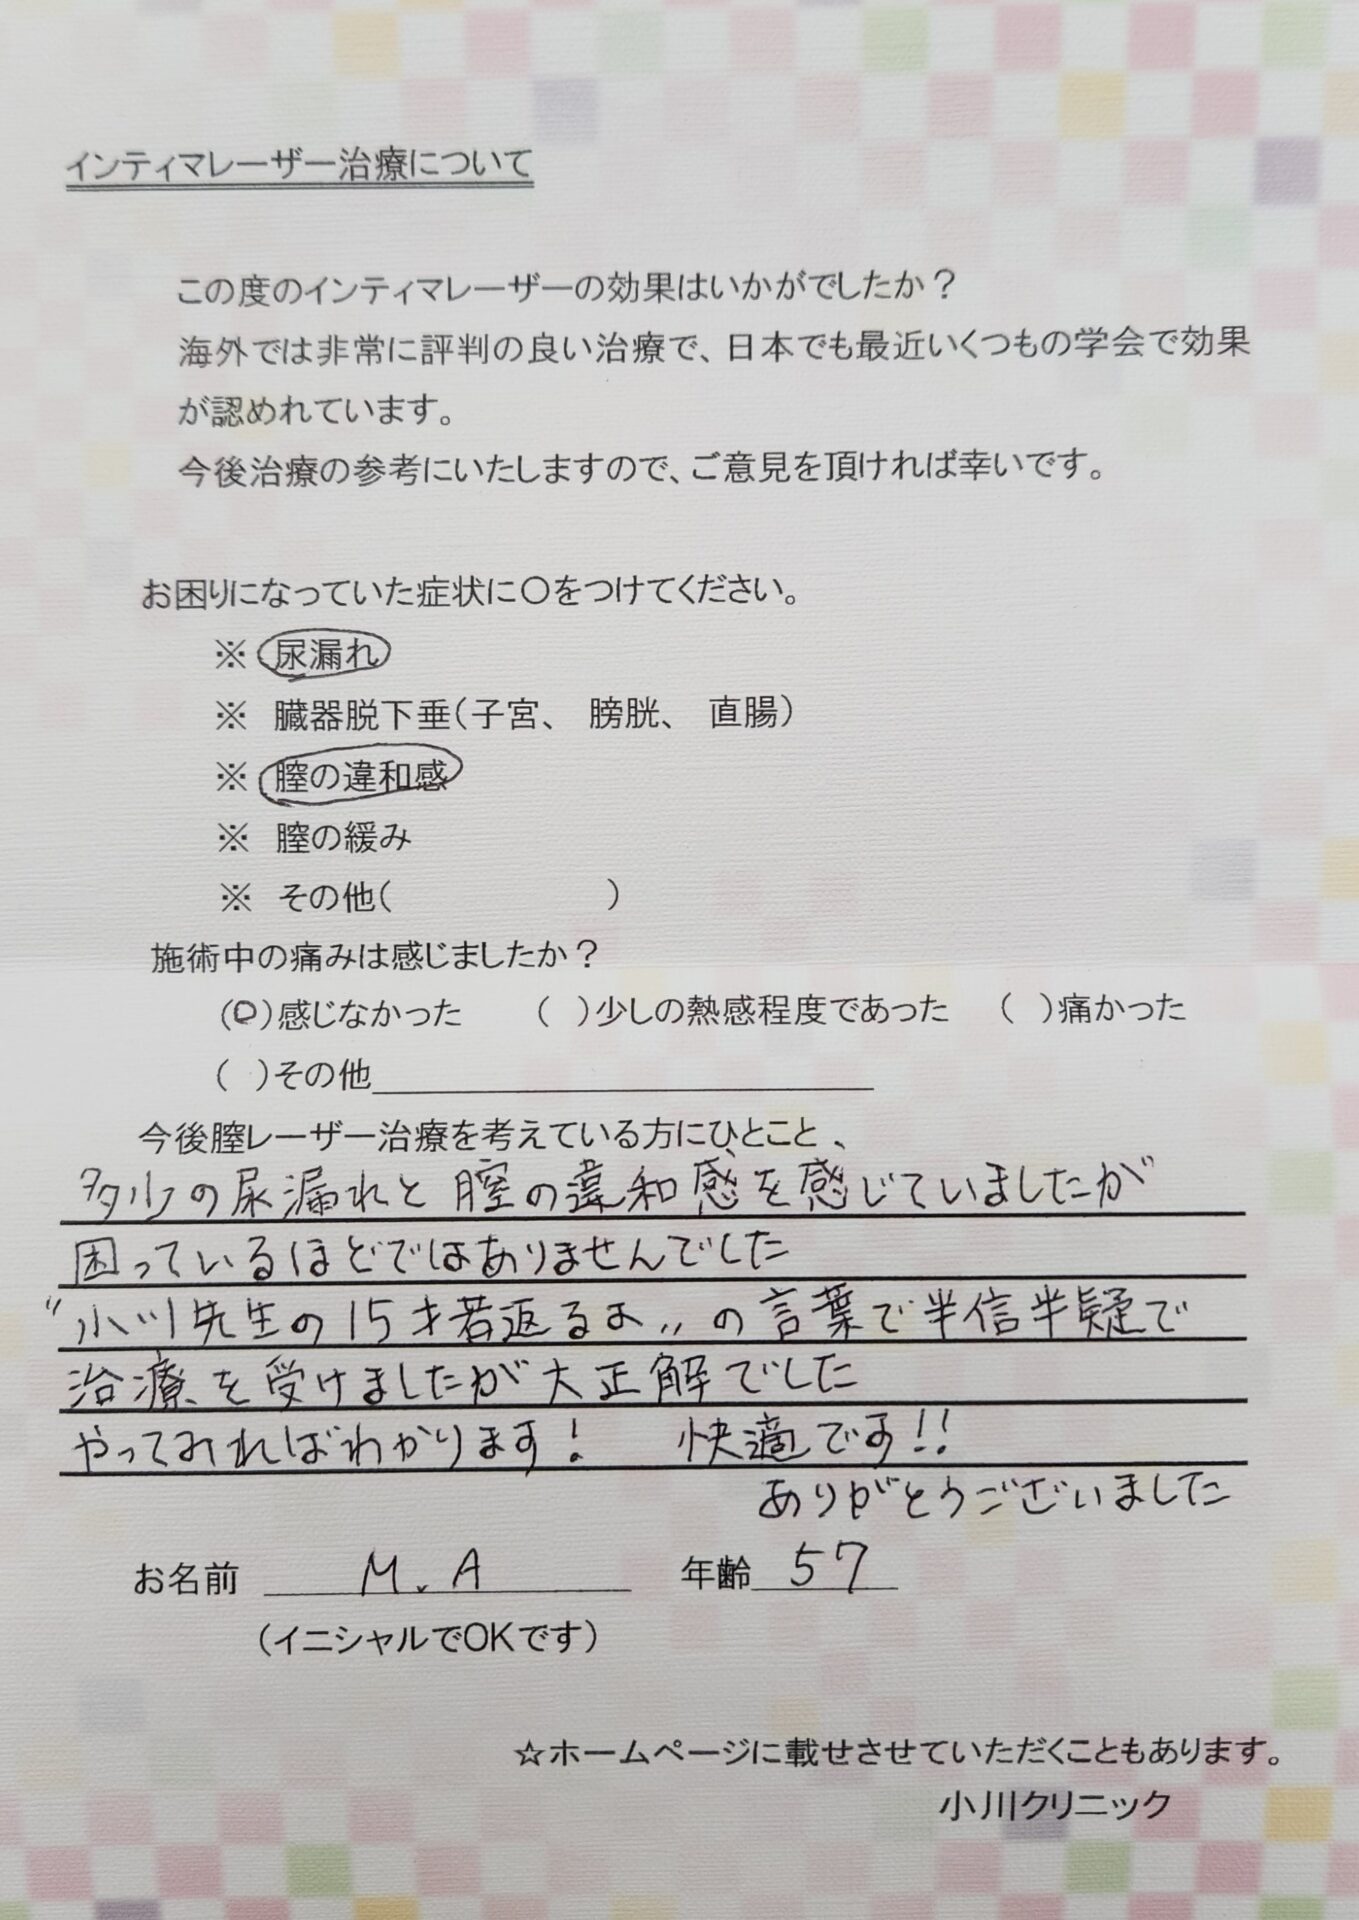 インティマレーザー治療について
この度のインティマレーザーの効果はいかがでしたか？
海外では非常に評判の良い治療で、日本でも最近いくつもの学会で効果
が認めれています。
今後治療の参考にいたしますので、ご意見を頂ければ幸いです。
お困りになっていた症状に〇をつけてください。
※ 尿漏れ
※ 臓器脱下垂（子宮、 膀胱、 直腸）
※ 膣の違和感
※ 膣の緩み
※ その他（ ）
施術中の痛みは感じましたか？
（○）感じなかった （ ）少しの熱感程度であった （ ）痛かった
（ ）その他
今後膣レーザー治療を考えている方にひとこと、
多少の尿漏れと膣の違和感を感じていましたが
困っているほどではありませんでした
〝小川先生の15才若返るよ〟の言葉で半信半疑で
治療を受けましたが大正解でした
やってみればわかります！ 快適です!!
ありがとうございました
お名前 M.A 年齢 57
（イニシャルでOKです）
☆ホームページに載せさせていただくこともあります。
小川クリニック